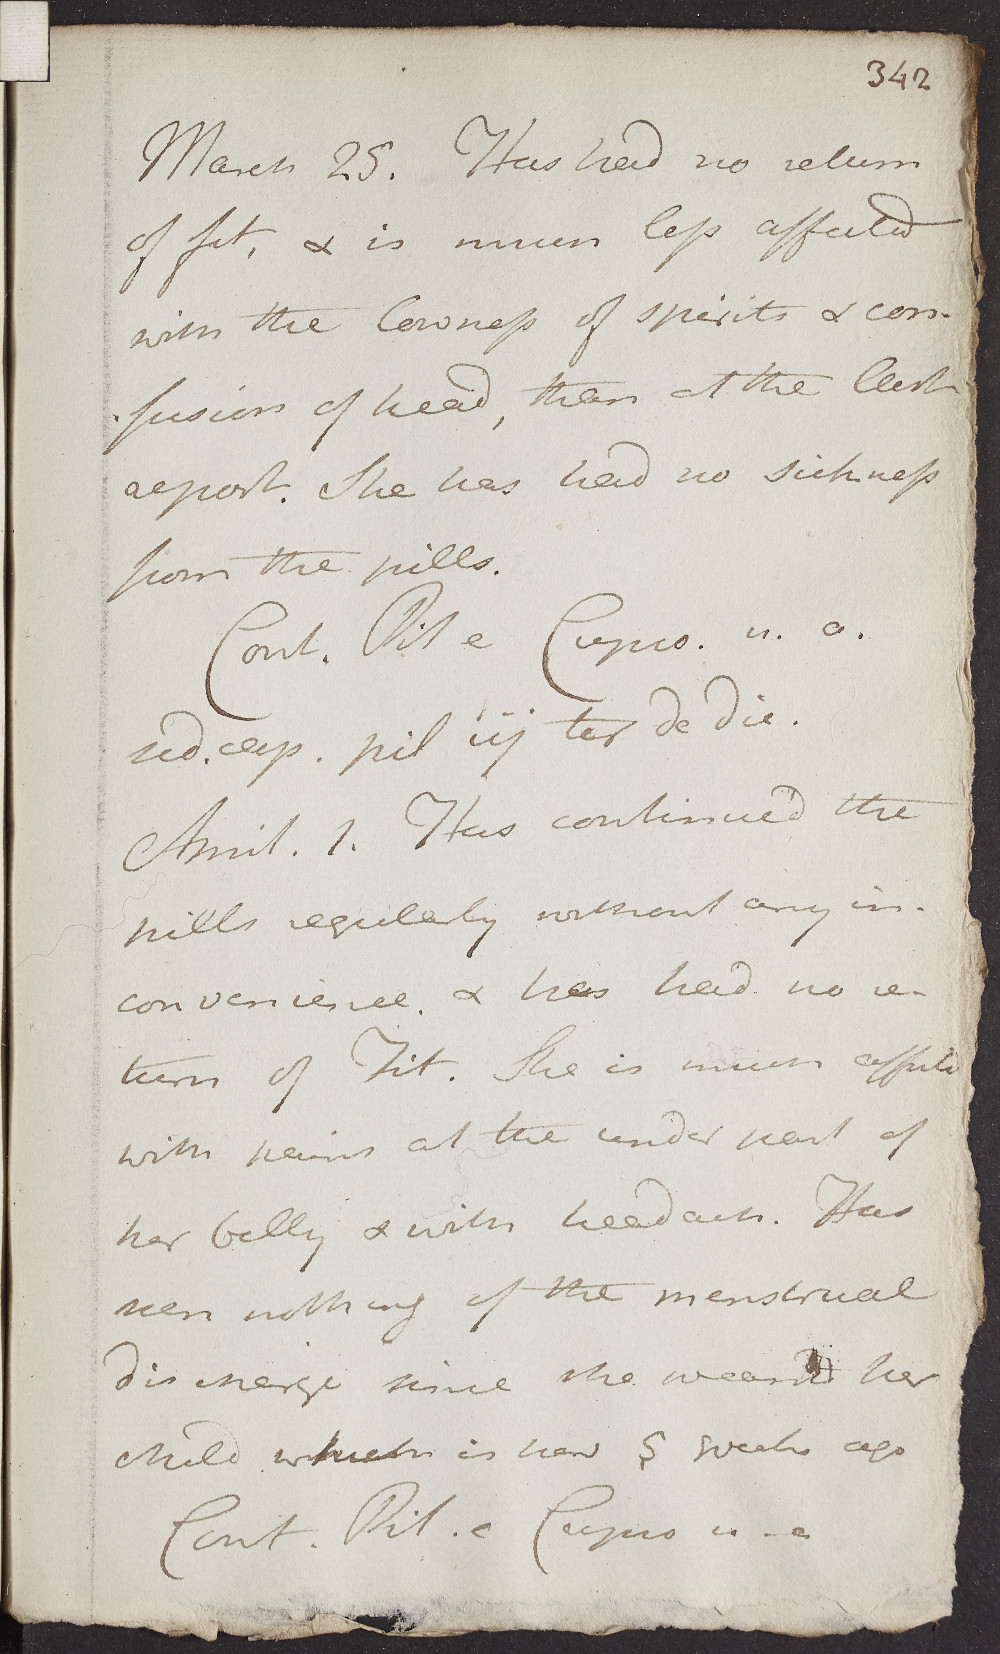 342
March 25. Has had no return
of fit, & is much less affected
with the lowness of spirits & con-
-fusion of head, than at the last
report. She has had no sickness
from the pills.
Cont. Pil e Cupro. u. a.
sed. cap. pil iij ter de die.
April. 1. Has continued the
pills regularly without any in-
convenience. & has had no re-
turn of Fit. She is much affected
with pains at the under part of
her belly & with headach. Has
seen nothing of the menstrual
discharge since she weand her
child which is now 5 weeks ago
Cont. Pil. e Cupro u - a